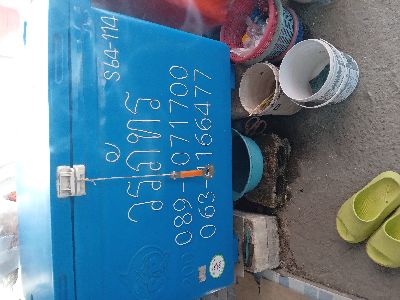 S64-114
วรภัทร
089-1071700
063-4166477